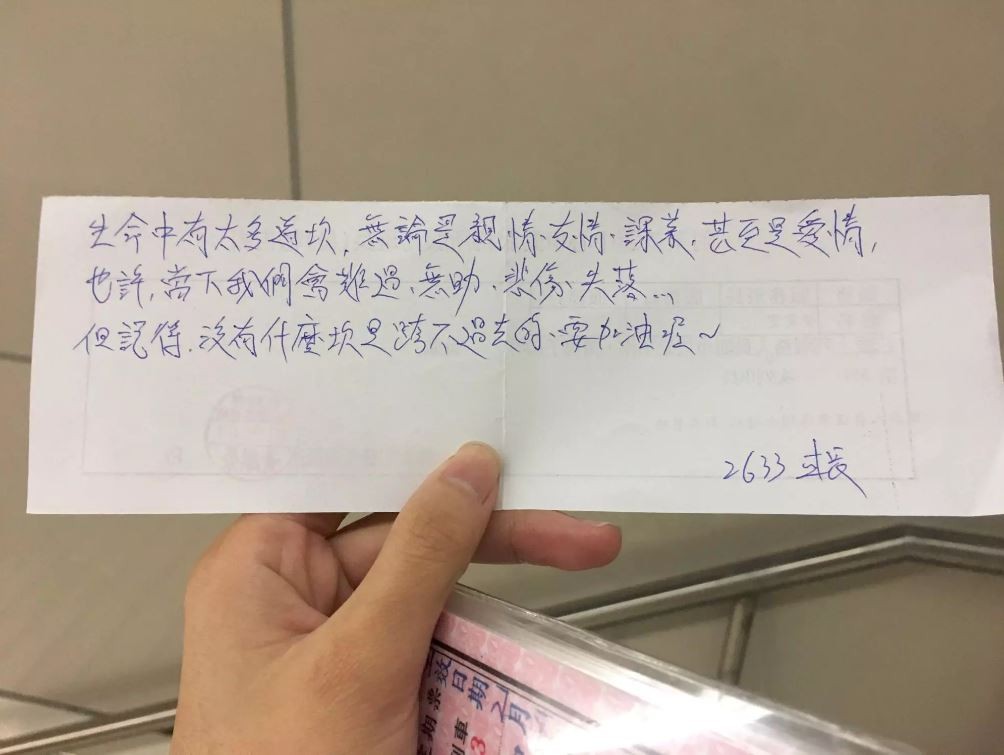 生命中有太多道坎,無論是親情、友情、課業,甚至是愛情,
也許,當下我們會難過、無助、悲傷、失落...
但記得,沒有什麼坎是跨不過去的,要加油喔~
2633 車長
效日期
2月
期票
列車
3